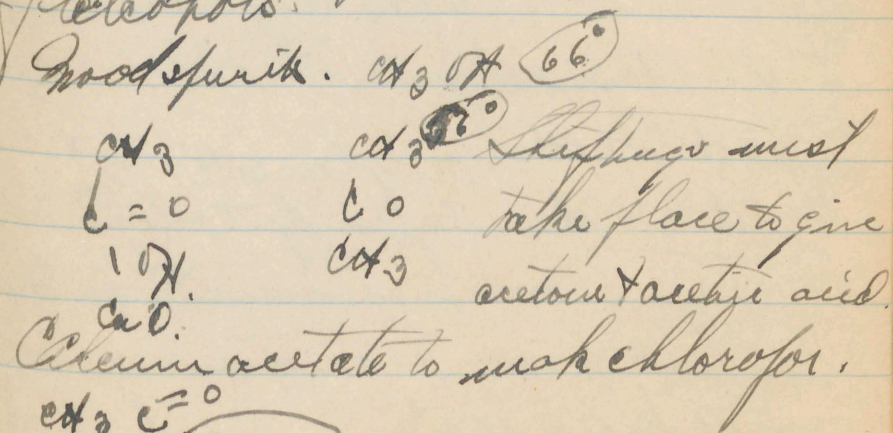 Wood spirits. CH3OH 66°
CH3 CH3 56° Shiftings must
C=O CO take place to give
OH. CH3
acetone & acetic acid.
CaO.
Calcium acetate to make chlorofor.
CH3 C=O